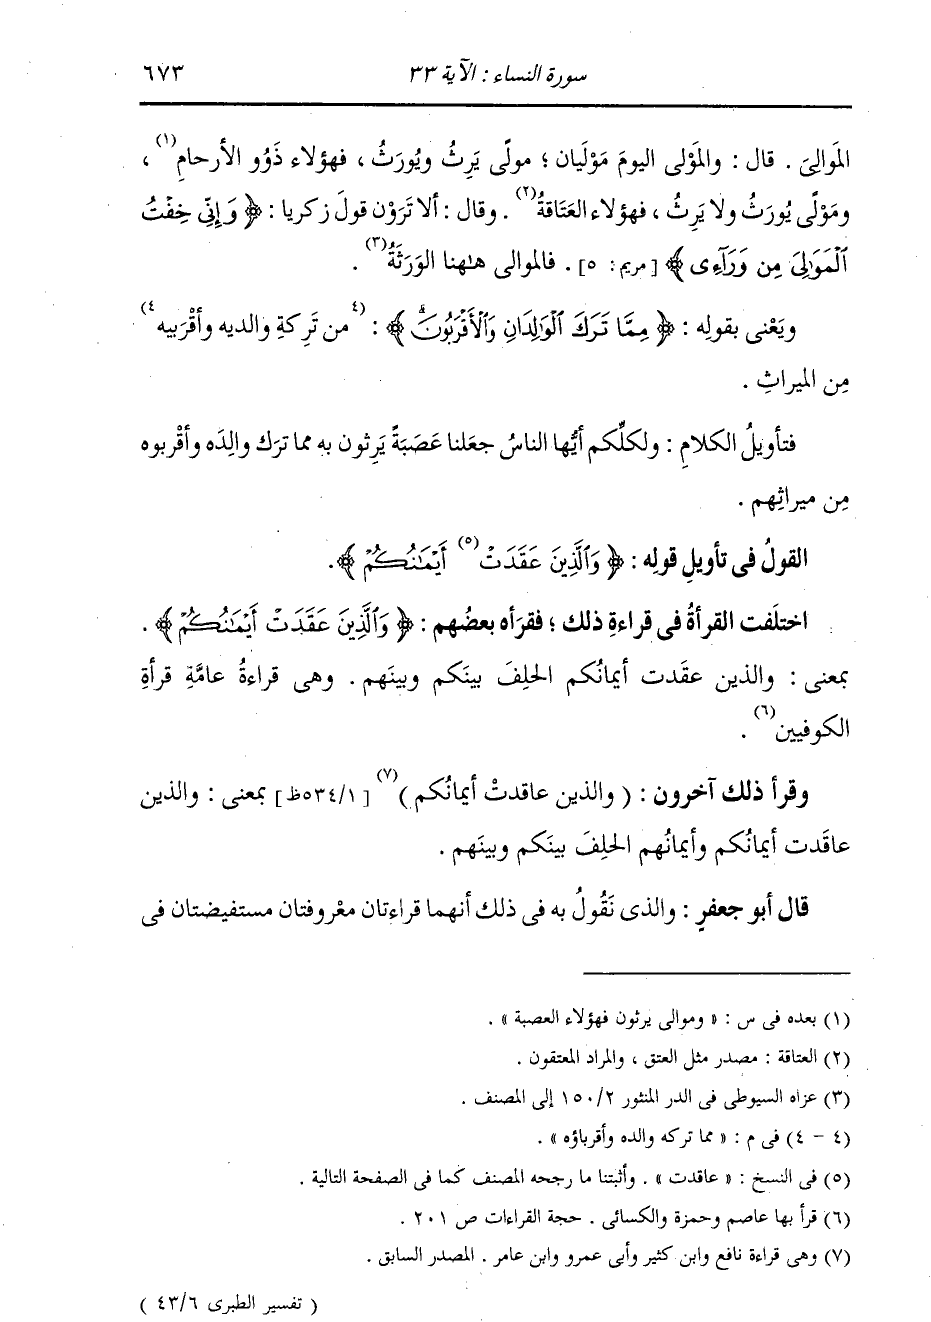 سورة النساء : الآية ٣٣
٦٧٣
المَوالِىَ . قال : والمَوْلى اليومَ مَوْلَيان ؛ مولًى يَرِثُ ويُورَثُ ، فهؤلاء ذَوُو الأرحامِ(١) ،
ومَوْلًى يُورَثُ ولا يَرِثُ ، فهؤلاء العَتَاقةُ(٢) . وقال : ألا تَرَوْن قولَ زكريا : ﴿ وَإِنِّى خِفْتُ
ٱلْمَوَٰلِىَ مِن وَرَآءِى ﴾ [ مريم : ٥ ] . فالموالى هٰهنا الوَرَثةُ(٣) .
ويَعْنى بقولِه : ﴿ مِمَّا تَرَكَ ٱلْوَٰلِدَانِ وَٱلْأَقْرَبُونَۚ ﴾ : (٤ من تَرِكةِ والديه وأقْرَبيه ٤)
مِن الميراثِ .
فتأويلُ الكلامِ : ولكلِّكم أيُّها الناسُ جعَلنا عَصَبَةً يَرِثون به مما ترَك والِدَه وأقْربوه
مِن ميراثِهم .
القولُ فى تأويلِ قولِه : ﴿ وَٱلَّذِينَ عَقَدَتْ (٥) أَيْمَٰنُكُمْ ﴾ .
اختلَفت القرأةُ فى قراءةِ ذلك ؛ فقرَأه بعضُهم : ﴿ وَٱلَّذِينَ عَقَدَتْ أَيْمَٰنُكُمْ ﴾ .
بمعنى : والذين عقَدت أيمانُكم الحلِفَ بينَكم وبينَهم . وهى قراءةُ عامَّةِ قرأةِ
الكوفيين(٦) .
وقرأ ذلك آخرون : ( والذين عاقدتْ أيمانُكم )(٧) [ ٥٣٤/١ظ ] بمعنى : والذين
عاقَدت أيمانُكم وأيمانُهم الحلِفَ بينَكم وبينَهم .
قال أبو جعفرٍ : والذى نَقُولُ به فى ذلك أنهما قراءتان معْروفتان مستفيضتان فى
(١) بعده فى س : « وموالى يرثون فهؤلاء العصبة » .
(٢) العتاقة : مصدر مثل العتق ، والمراد المعتقون .
(٣) عزاه السيوطى فى الدر المنثور ١٥٠/٢ إلى المصنف .
(٤ - ٤) فى م : « مما تركه والده وأقرباؤه » .
(٥) فى النسخ : « عاقدت » . وأثبتنا ما رجحه المصنف كما فى الصفحة التالية .
(٦) قرأ بها عاصم وحمزة والكسائى . حجة القراءات ص ٢٠١ .
(٧) وهى قراءة نافع وابن كثير وأبى عمرو وابن عامر . المصدر السابق .
( تفسير الطبرى ٤٣/٦ )